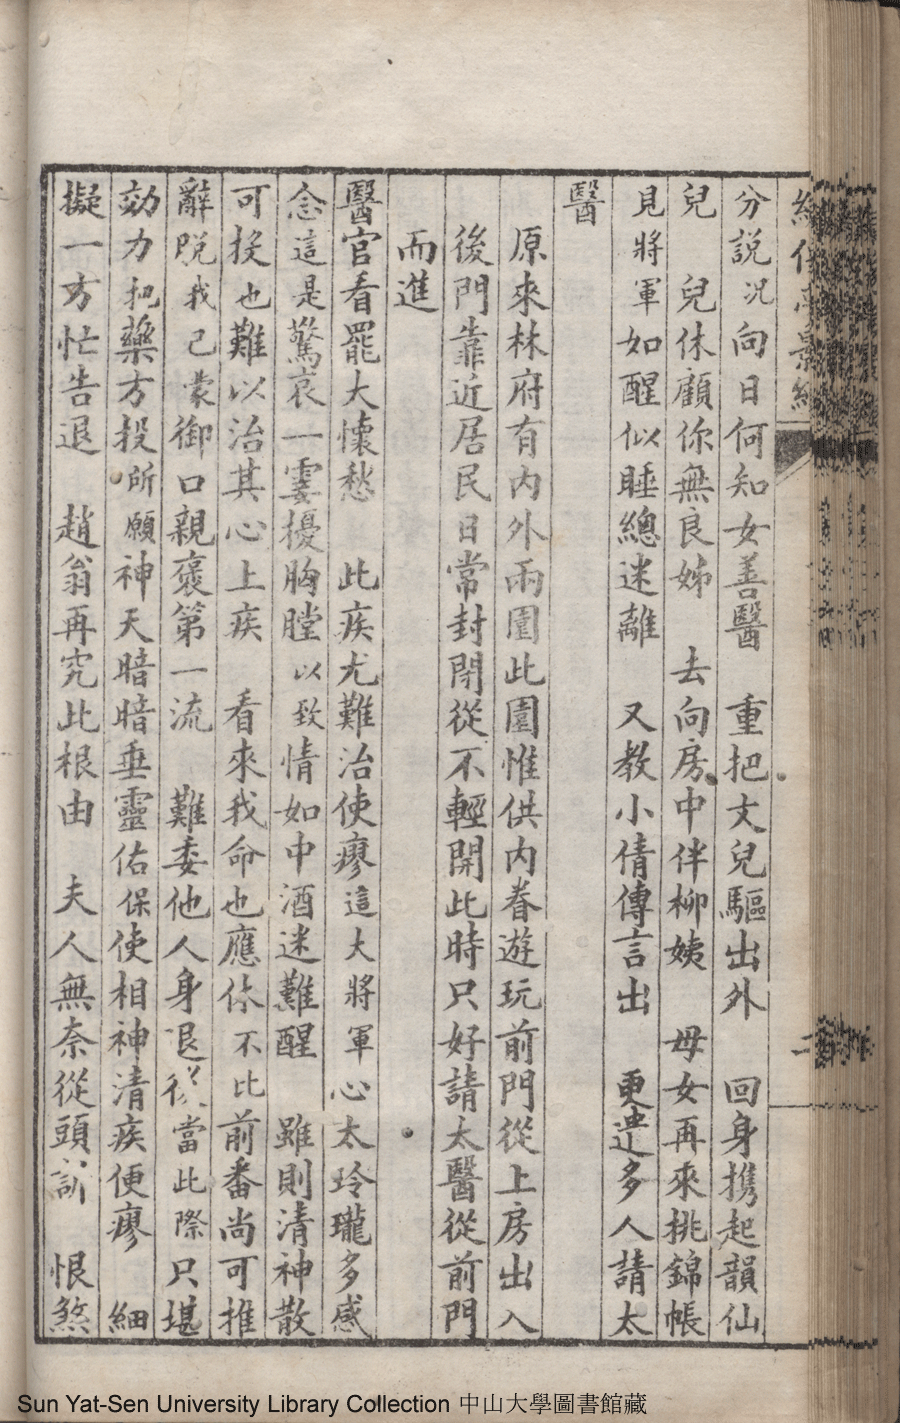 分説况向日何知女善醫　重把丈兒驅出外　回身携起韻仙
兒　兒休顧你無良姊　去向房中伴柳姨　母女再來挑錦帳
見將軍如醒似睡總迷離　又教小倩傳言出　更遣多人請太
醫
原來林府有內外兩園此園惟供內眷遊玩前門從上房出入
後門靠近居民日常封閉從不輕開此時只好請太醫從前門
而進
醫官看罷大懷愁　此疾尤難治使廖這大將軍心太玲瓏多感
念這是驚哀一霎擾胸膛以致情如中酒迷難醒　雖則清神散
可投也難以治其心上疾　看來我命也應休不比前番尚可推
辭脫我已蒙御口親褒第一流　難委他人身退後當此際只堪
効力和藥方投所願神天暗暗垂靈佑保使相神清疾便廖　細
擬一方忙告退　趙翁再究此根由　夫人無奈從頭訴　恨煞
二
Sun Yat-Sen University Library Collection 中山大學圖書館藏